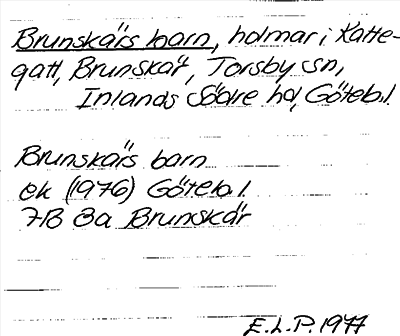 Brunskärs barn, holmar i Katte-
gatt, Brunskär, Torsby sn,
Inlands Södre hd, Göteb.l.
Brunskärs barn
ek (1976) Göteb.l.
7B 8a Brunskär
E.L.P. 1977